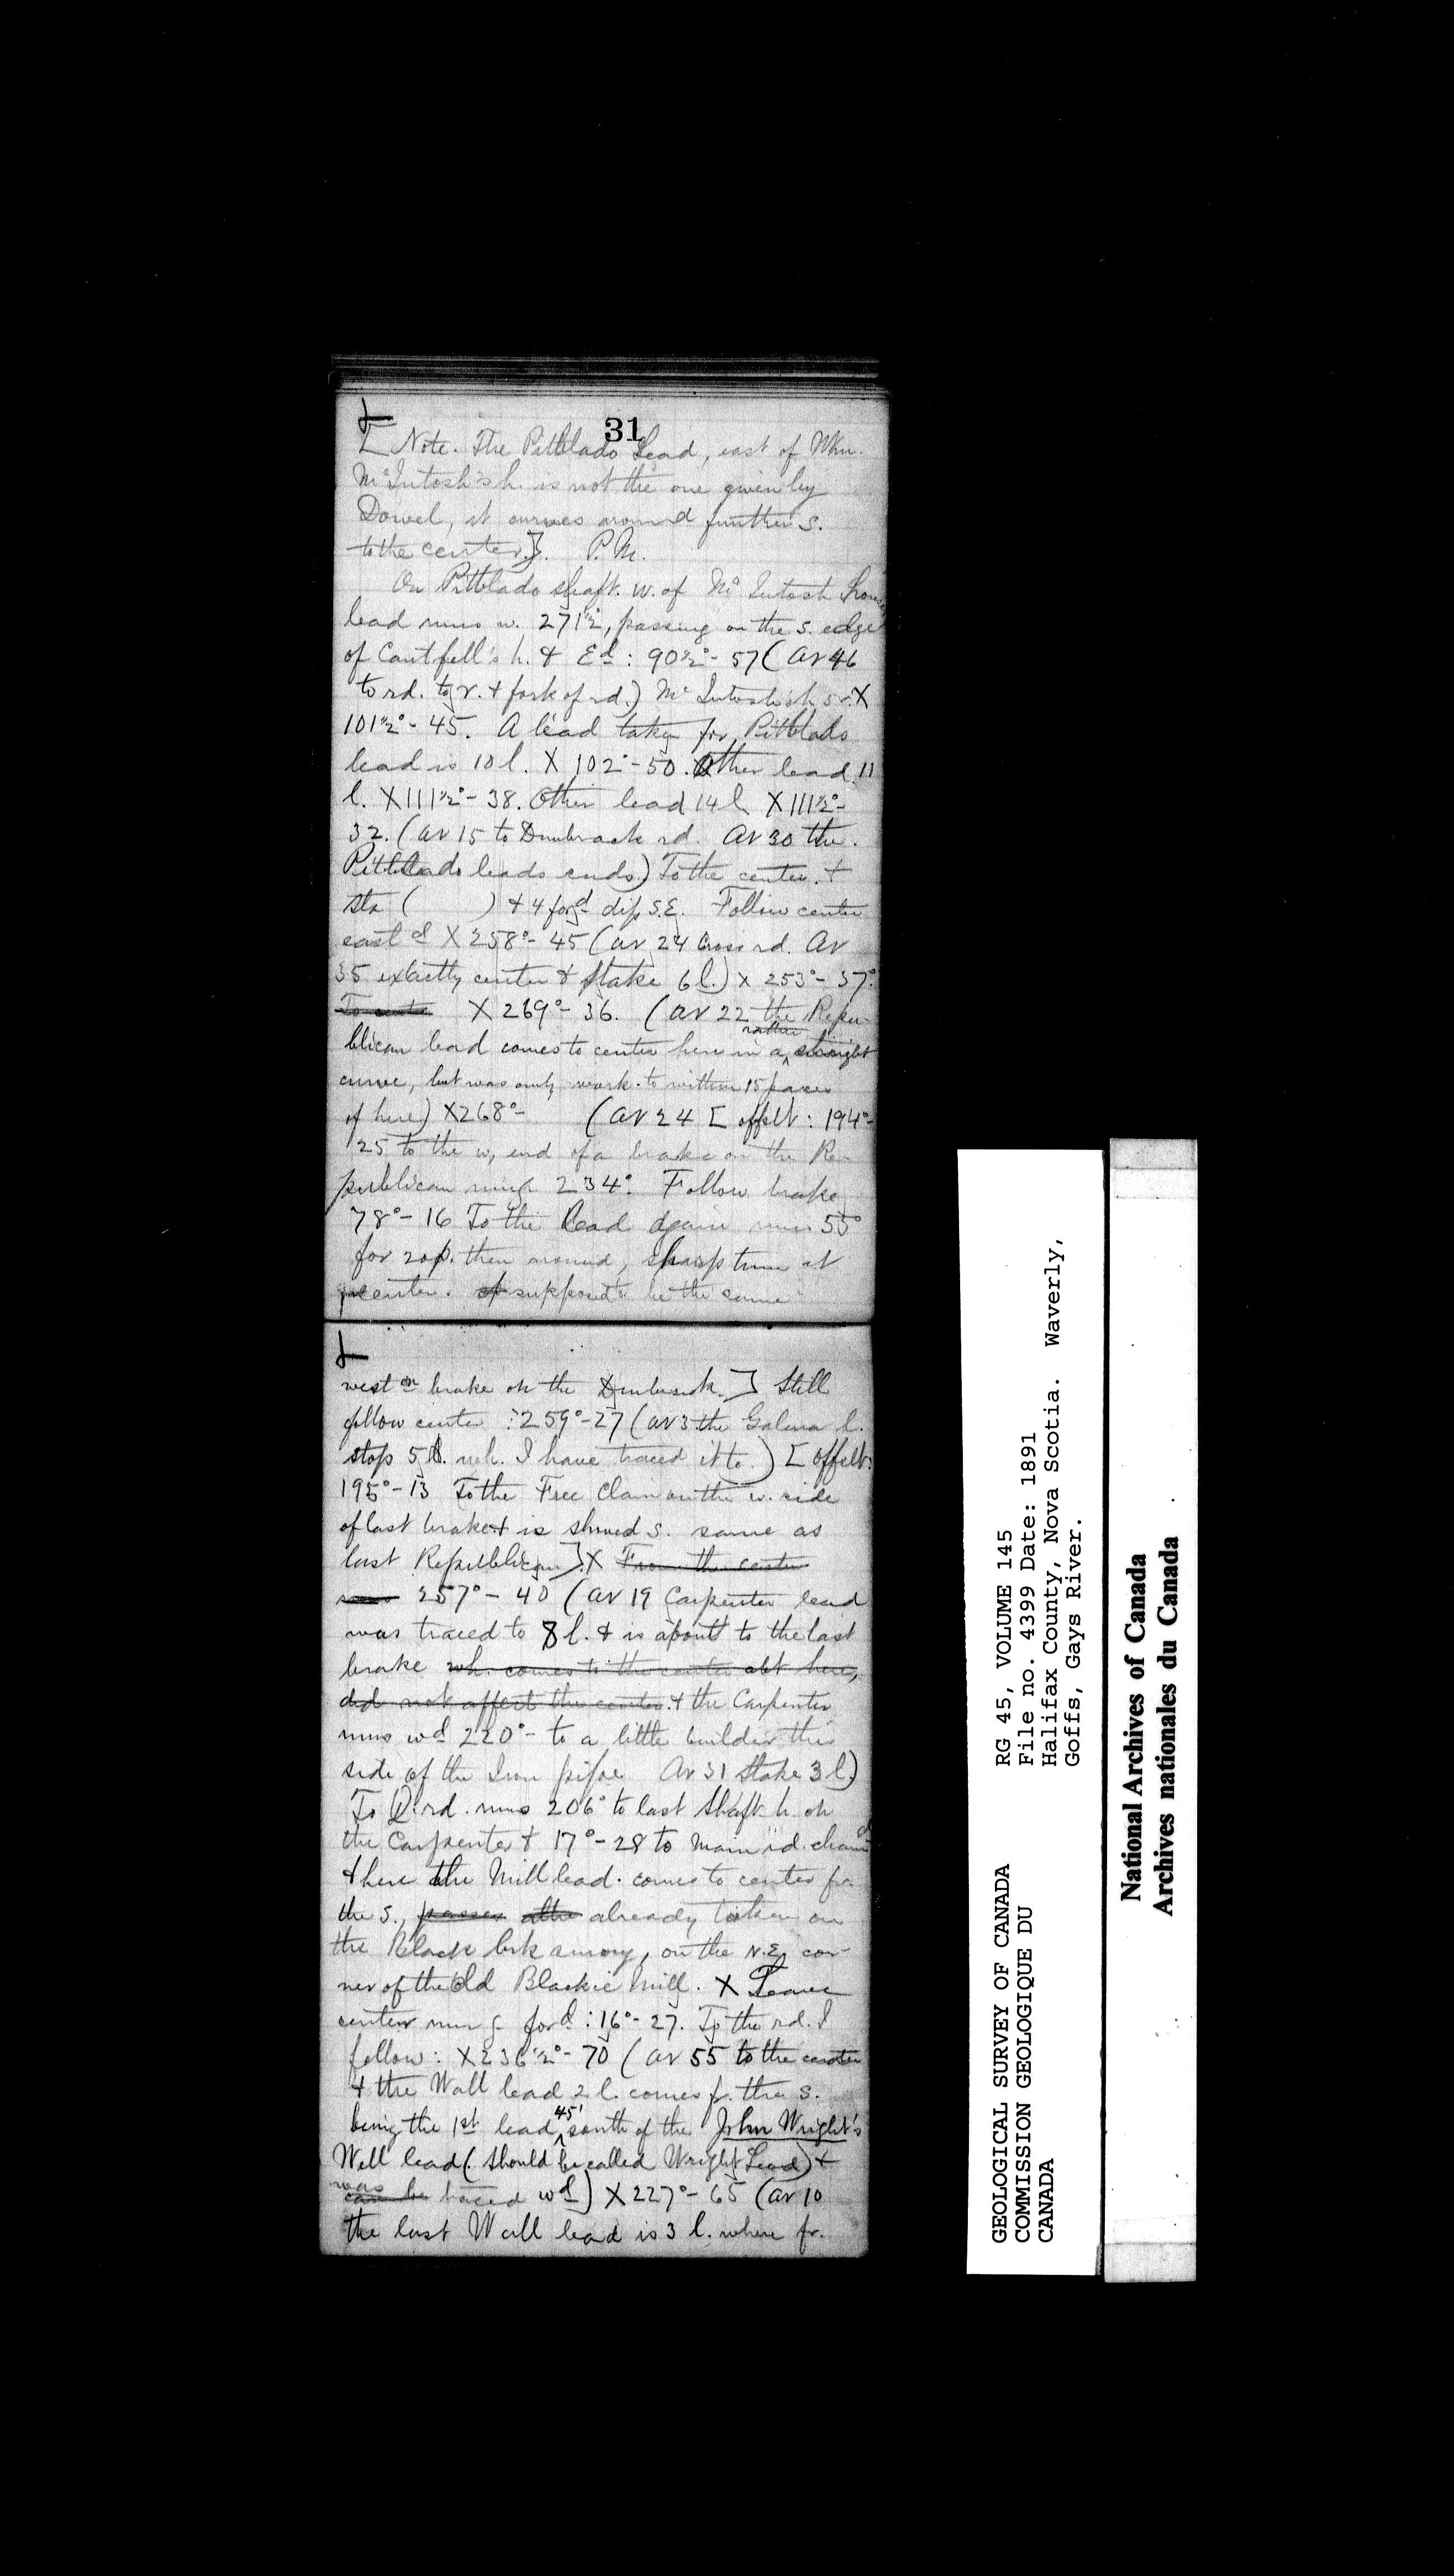 31
[ Note. The Pittblado Lead, east of Wm.
McIntosh's h. is not the one given by
Dowel, it curves around further s.
to the center.]. P.M.
On Pittblado shaft. w. of Mc Intosh house
lead runs w. 271½, passing on the s. edge
of h. & Ed: 90½°- 57 ( av 46
to rd. to r. & fork of rd.) Mc Intosh sh 5 r. X
101½°- 45. A lead taken for Pittblado
lead is 10 l. X 102°- 50. Other lead 11
l. X 111½°- 38. Other lead 14 l. X 111½°-
32. ( av 15 to Dunbrack rd. av 30 the
Pittblado leads ends.) To the center. &
sta ( ) & 4 ford dip S.E. Follow center
east d X 258°- 45 ( av 24 Cross rd. av
35 exactly center & stake 6 l.) x 253°- 37°
X 269°- 36. ( av 22 the Repu-
blican lead comes to center here in a rather straight
curve, but was only work. to within 15 paces
of here) X 268°- ( av 24 [ offset: 194°-
25 to the w. end of a brake on the Re-
publican rung 234°. Follow brake
78°- 16 To the lead again runs 55°
for 20 p. then around, sharp turn at
center. supposed to be the same
west on brake on the Dunbrack.] Still
follow center : 259°- 27 ( av 3 the Galena l.
stop 5 l. wh. I have traced it to.) [ offset:
195°- 13 To the Free Claim on the w. side
of last brake & is shoved s. same as
last Republican]. X From the center
257°- 40 ( av 19 Carpenter lead
was traced to 8 l. & is about to the last
brake wh. comes to the center abt here,
did not affect the center. & the Carpenter
runs wd 220°- to a little this
side of the Iron pipe. av 31 stake 3 l.)
To D. rd. runs 206° to last shaft h. on
the Carpenter & 17°- 28 to main rd. chaind
& here the Mill lead. comes to center fr.
the s., passes already taken on
the Black brk survey, on the N.E. cor-
ner of the Old Blackie Mill. X Leave
center rung ford : 16°- 27. To the rd. I
follow: X 236½°- 70 ( av 55 to the center
& the Wall lead 2 l. comes fr. the s.
being the 1st lead 45' south of the John Wright's
Well lead (should be called Wright Lead) &
was can be traced wd) X 227°- 65 ( av 10
the last Wall lead is 3 l. where fr.
GEOLOGICAL SURVEY OF CANADA
COMMISSION GEOLOGIQUE DU
CANADA
RG 45, VOLUME 145
File no. 4399 Date: 1891
Halifax County, Nova Scotia. Waverly,
Goffs, Gays River.
National Archives of Canada
Archives nationales du Canada